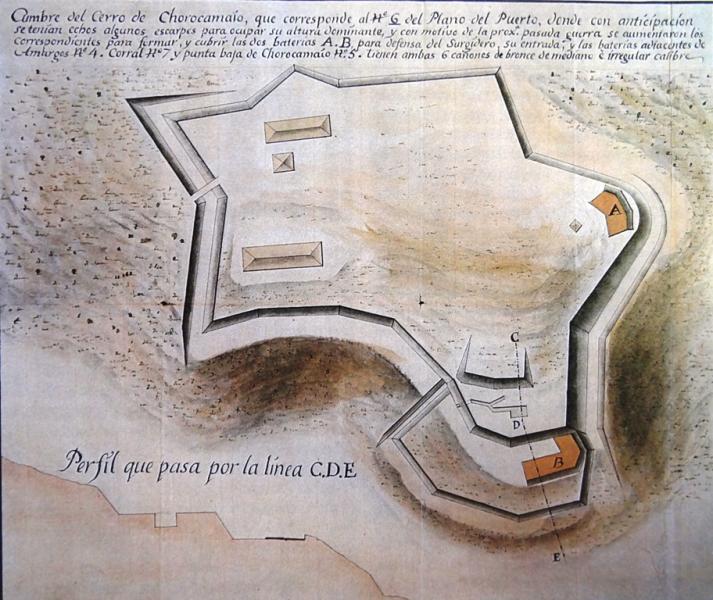 Cumbre del Cerro de Chorocamaío, que corresponde al Nº 6 del Plano del Puerto, donde con anticipacion
se tenían echos algunos escarpes para ocupar su altura dominante, y con motivo de la prox. pasada guerra se aumentaron los
correspondientes para formar, y cubrir las dos baterias A.B, para defensa del Surgidero, su entrada, y las baterias adiacentes de
Amargos Nº 4. Corral Nº 7 y punta baja de Chorocamaío Nº 5. tienen ambas 6 cañones de bronce de mediano è irregular calibre
A
C
D
B
Perfil que pasa por la línea C.D.E
E